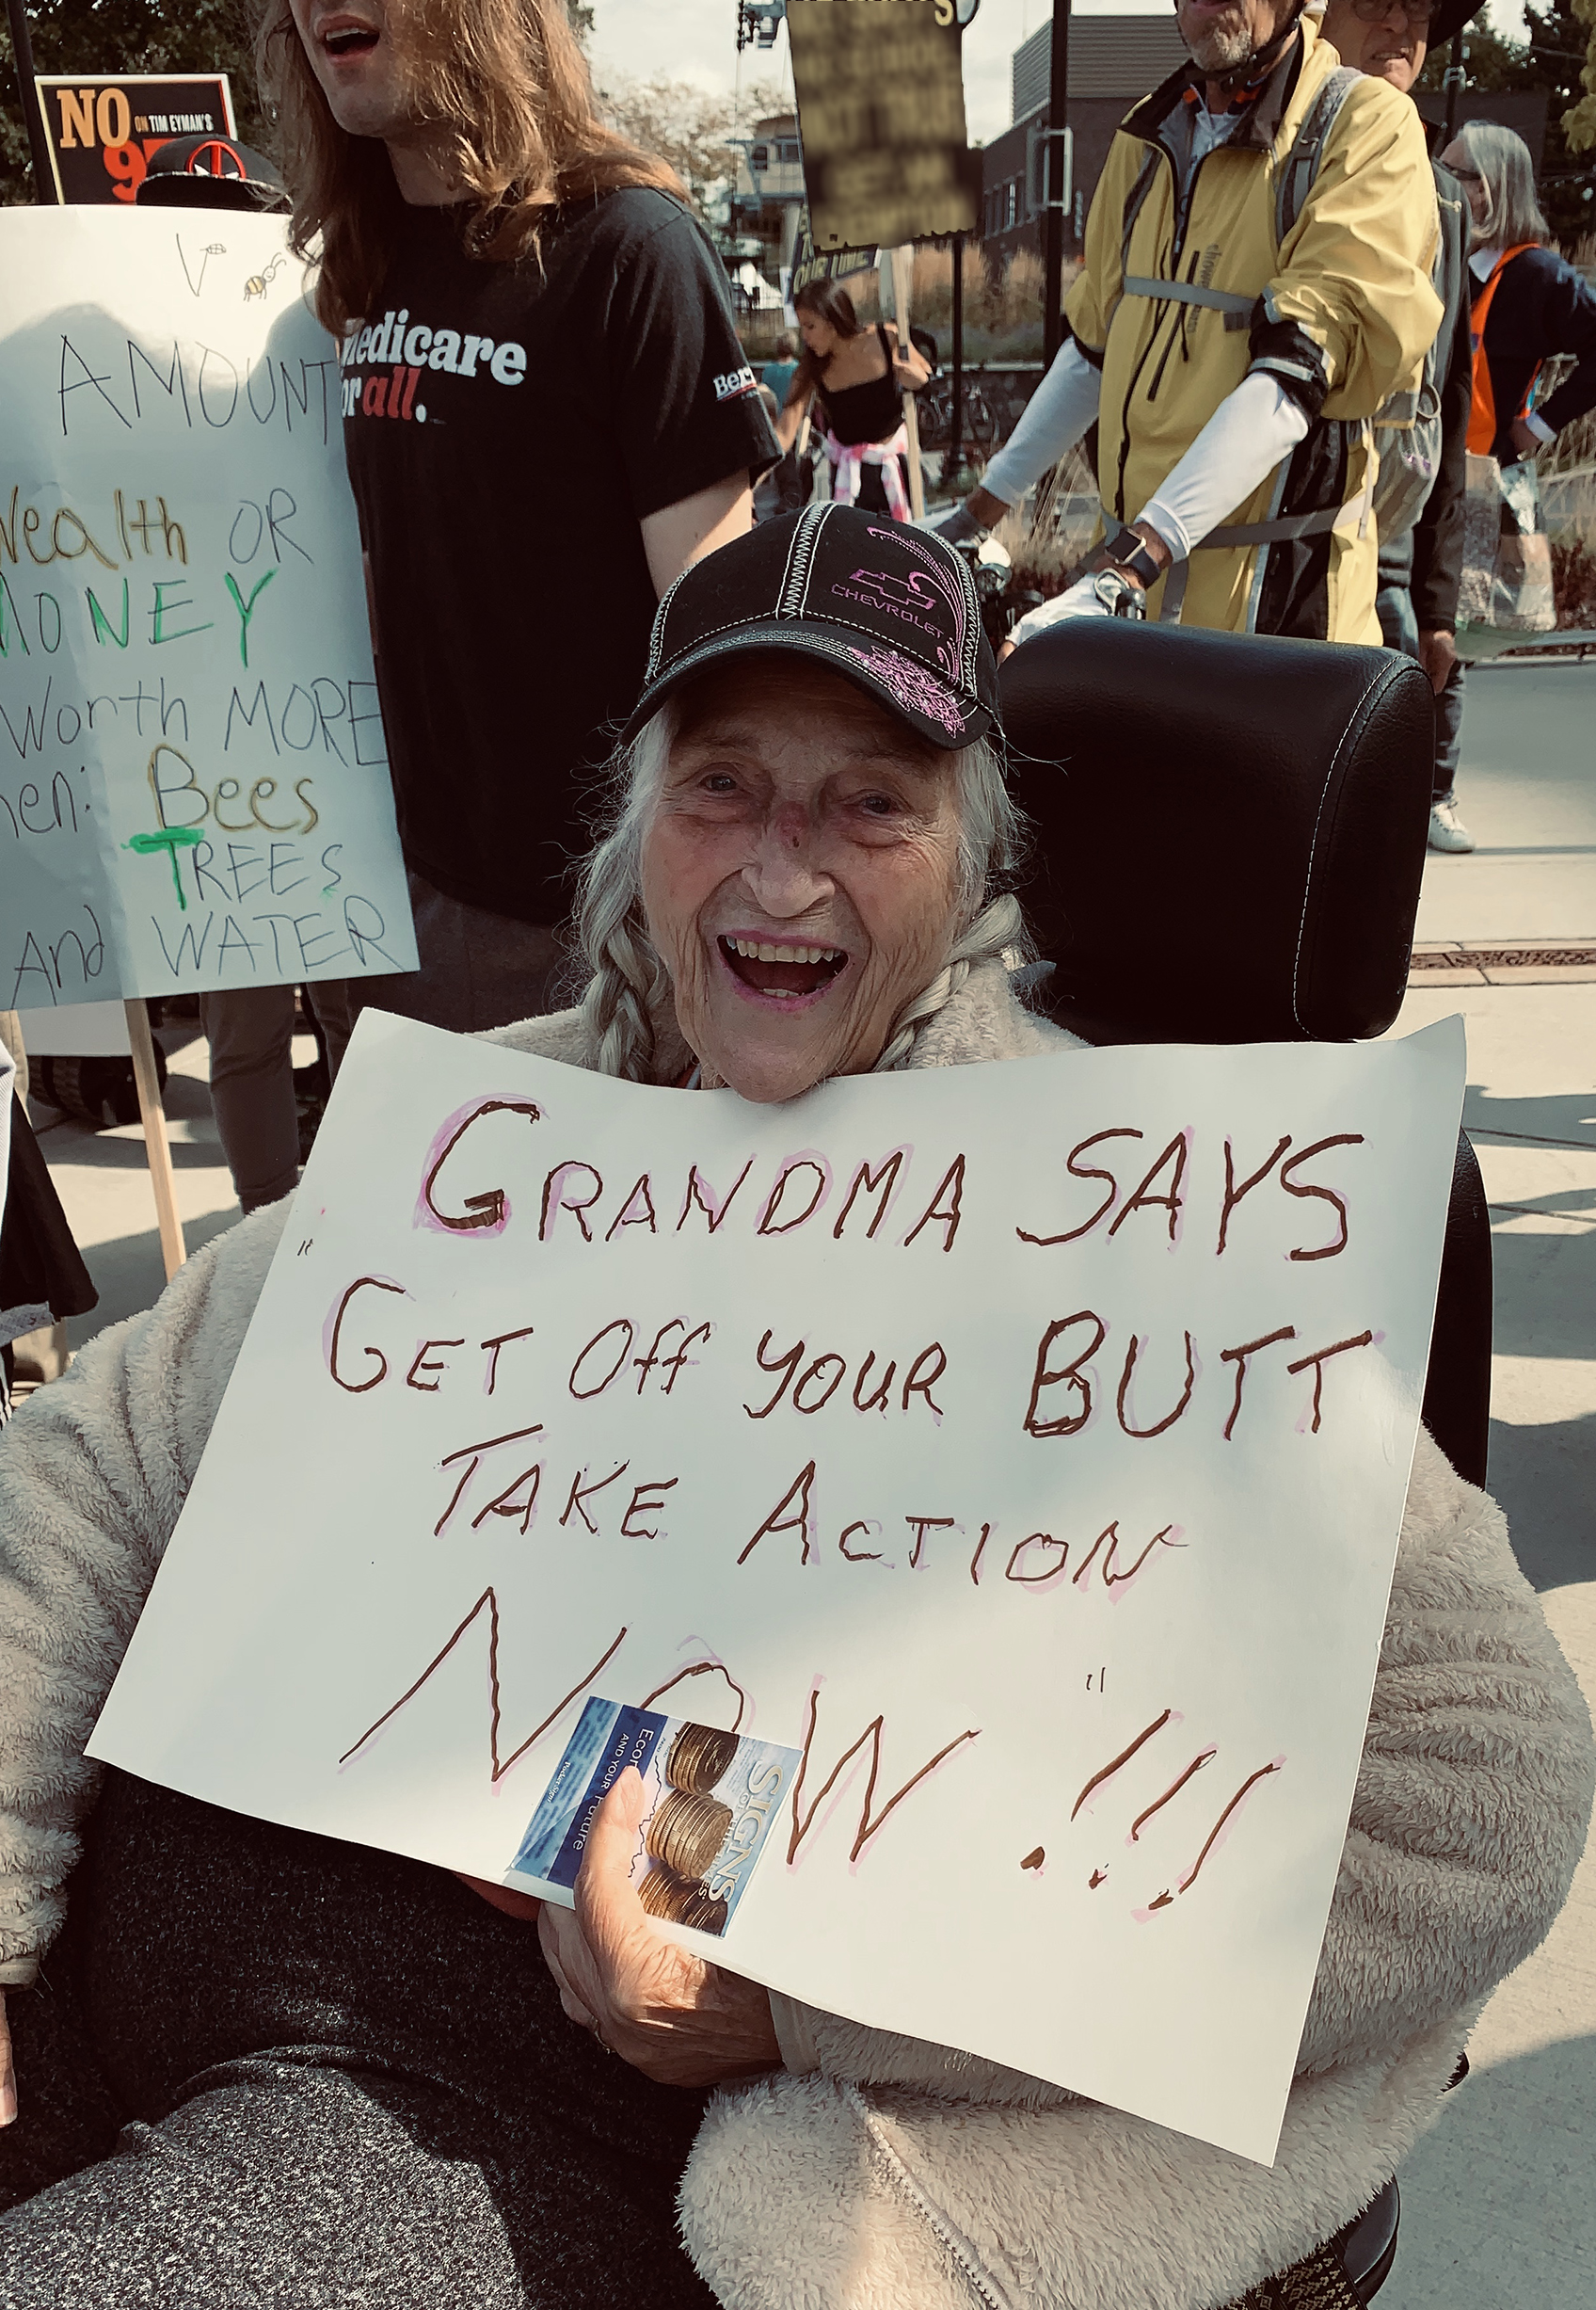 NO ON TIM EYMAN'S
AMOUNT
Wealth OR
MONEY
Worth MORE
Bees
TREES
And WATER
Medicare
for all.
CHEVROLET
GRANDMA SAYS
GET Off YOUR BUTT
TAKE ACTION
NOW !!!
SIGNS
OF THE TIMES
AND YOUR Future
Pocket Signs